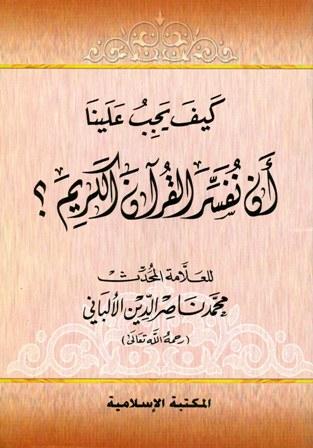 كَيفَ يَجِبُ عَلَينَا
أَن نُفَسِّرَ القُرآنَ الكَرِيمَ ؟
للعَلَّامة المُحَدِّث
محمد ناصر الدين الألباني
(رحمهُ اللهُ تعَالىٰ)
المكتبة الإسلامية